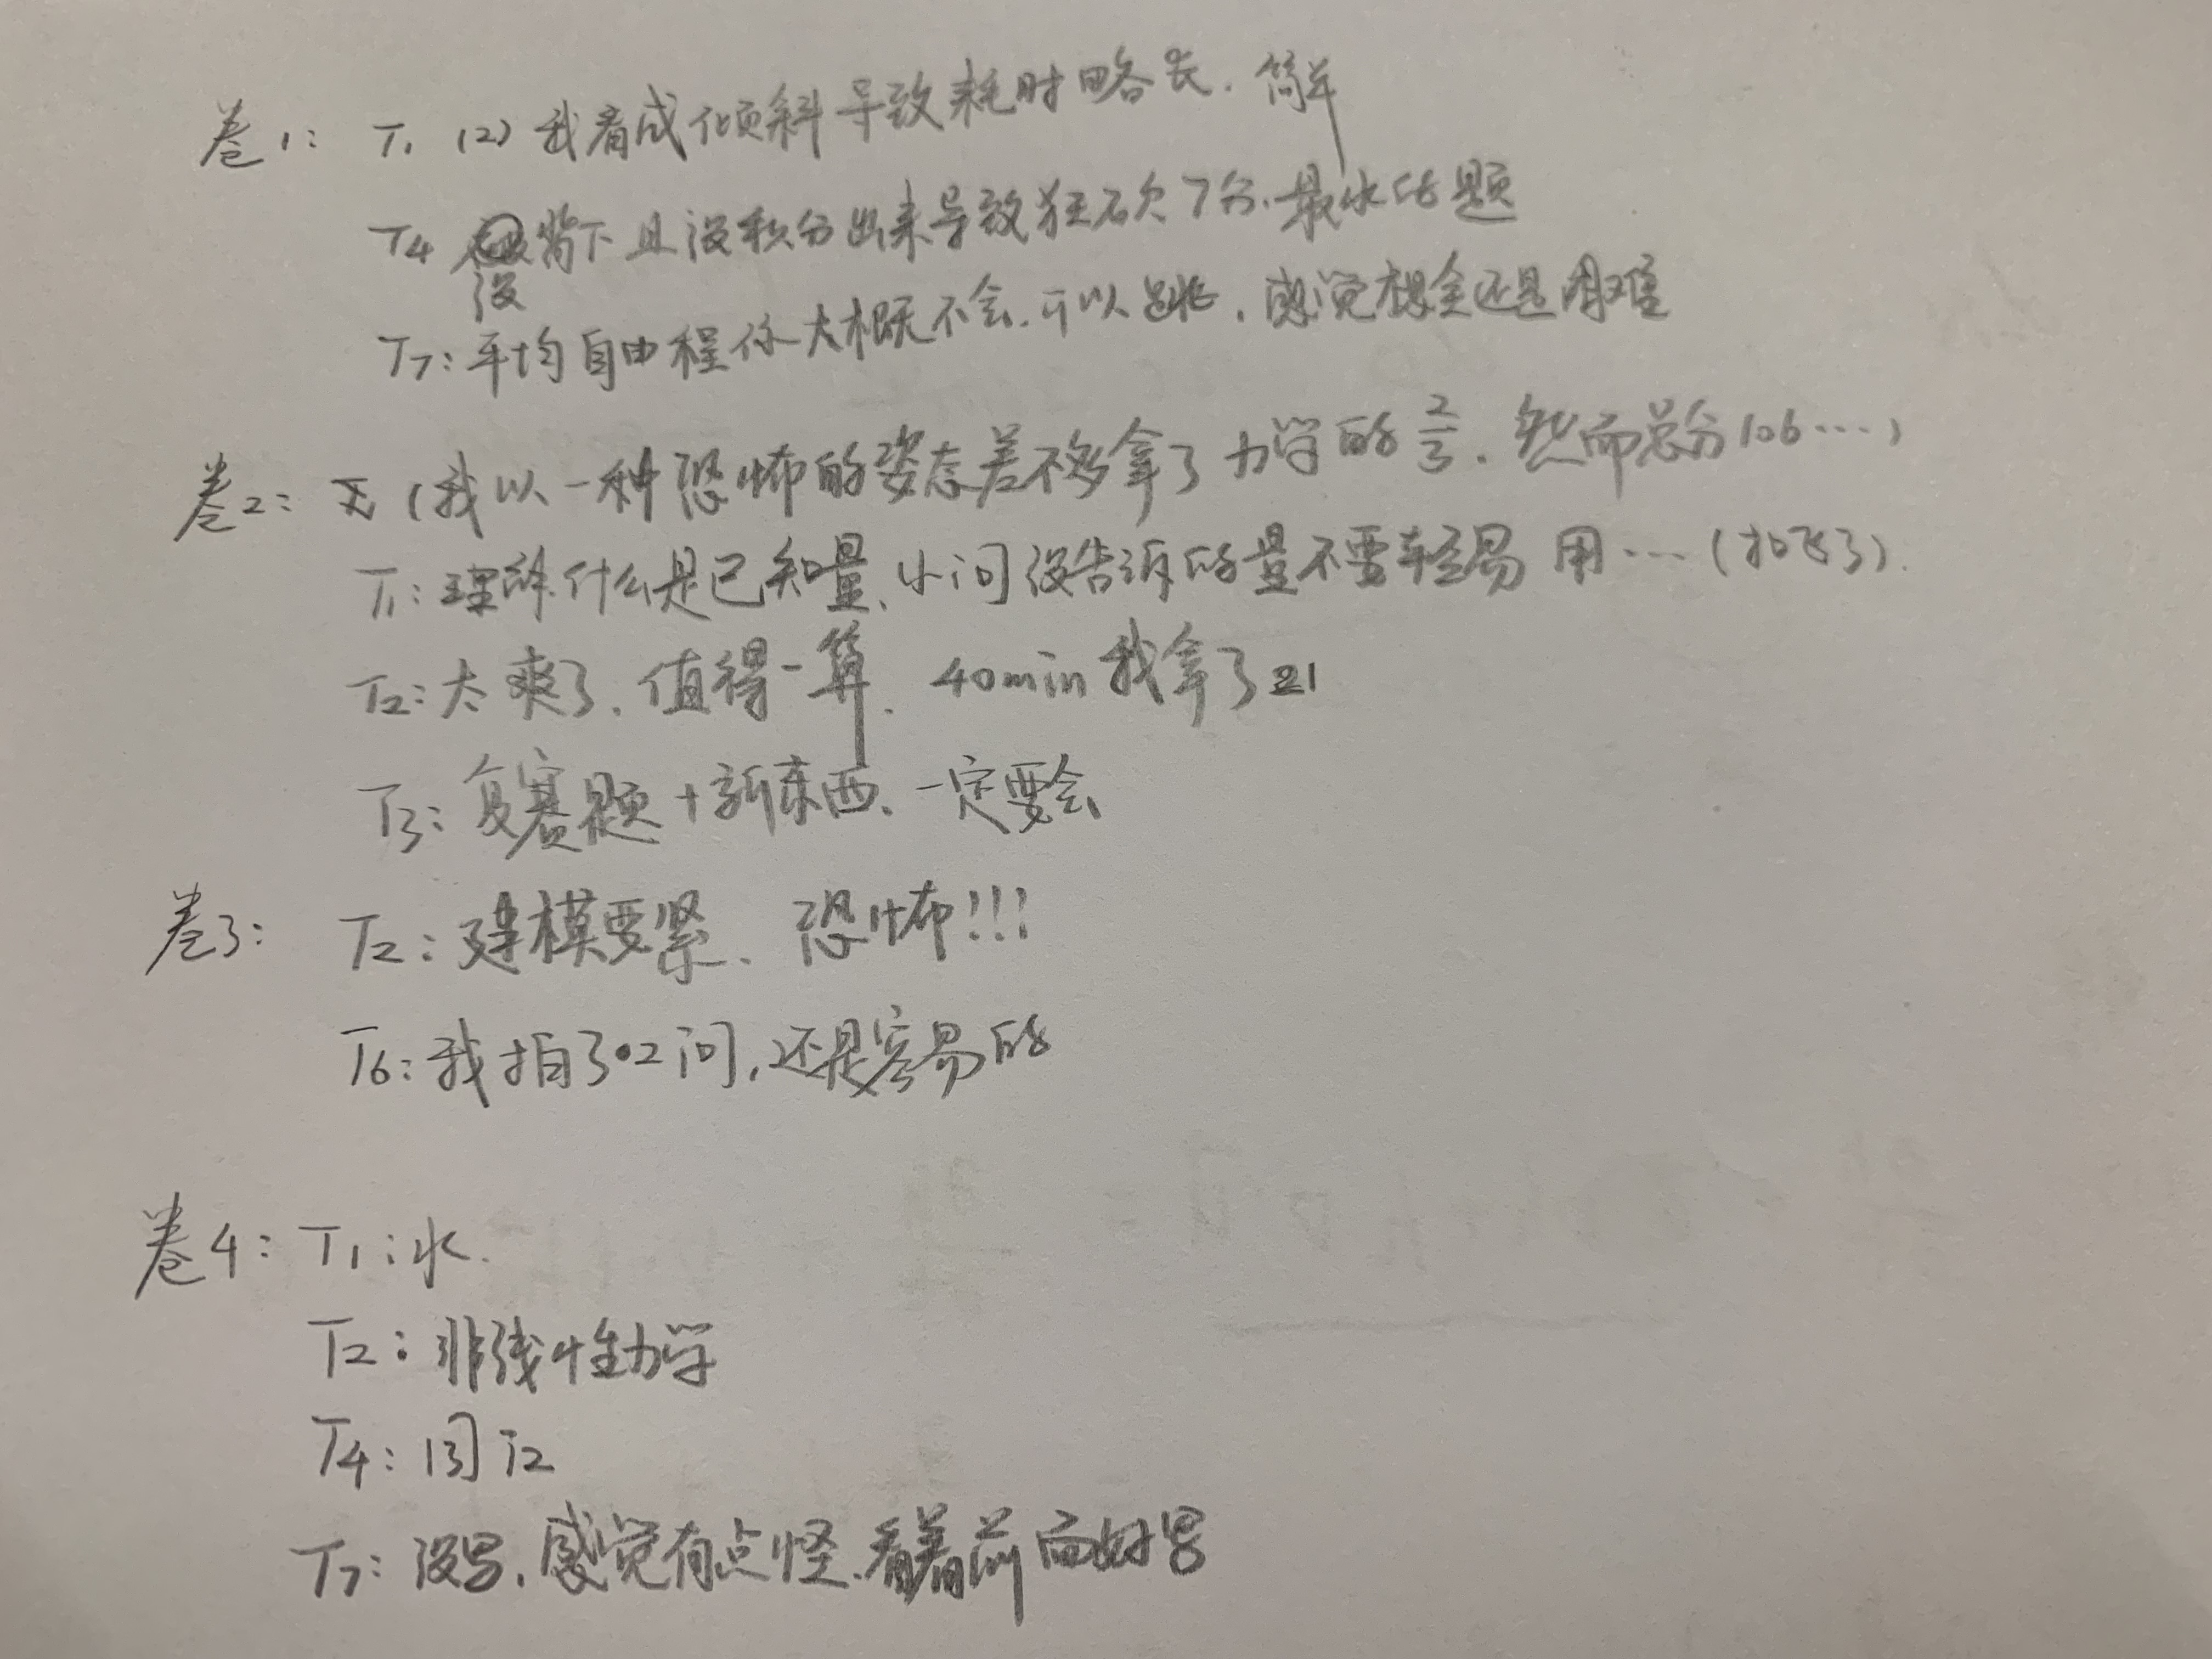 卷1: T1 (2) 我看成倾斜导致耗时略长. 简单
T4 没背下且没积分出来导致狂砍7分. 最水的题
T7: 平均自由程你大概不会. 可以跳, 感觉想全还是困难
卷2: 无 (我以一种恐怖的姿态差不多拿了力学的 2/3. 然而总分106……)
T1: 理解什么是已知量、小问没告诉的量不要轻易用…(扣飞了).
T2: 太爽了. 值得一算. 40min我拿了21
T3: 复赛题+新东西. 一定要会
卷3: T2: 建模要紧、恐怖!!!
T6: 我拍了2问, 还是容易的
卷4: T1: 水.
T2: 非线性力学
T4: 同T2
T7: 没写, 感觉有点怪. 看着前面好写